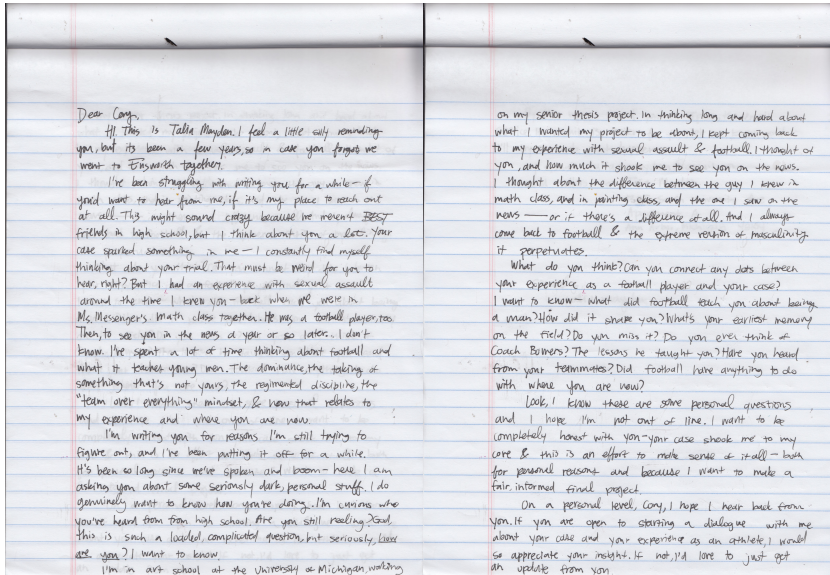 Dear Cory,
Hi. This is Talia Mayden. I feel a little silly reminding
you, but its been a few years, so in case you forgot we
went to Ensworth together.
I've been struggling with writing you for a while – if
you'd want to hear from me, if it's my place to reach out
at all. This might sound crazy because we weren't BEST
friends in high school, but I think about you a lot. Your
case sparked something in me – I constantly find myself
thinking about your trial. That must be weird for you to
hear, right? But I had an experience with sexual assault
around the time I knew you – back when we were in
Ms. Messenger's math class together. He was a football player, too.
Then, to see you in the news a year or so later... I don't
know. I've spent a lot of time thinking about football and
what it teaches young men. The dominance, the taking of
something that's not yours, the regimented discipline, the
"team over everything" mindset, & how that relates to
my experience and where you are now.
I'm writing you for reasons I'm still trying to
figure out, and I've been putting it off for a while.
It's been so long since we've spoken and boom – here I am
asking you about some seriously dark, personal stuff. I do
genuinely want to know how you're doing. I'm curious who
you've heard from from high school. Are you still reeling? God,
this is such a loaded, complicated question, but seriously, how
are you? I want to know.
I'm in art school at the University of Michigan, working
on my senior thesis project. In thinking long and hard about
what I wanted my project to be about, I kept coming back
to my experience with sexual assault & football. I thought of
you, and how much it shook me to see you on the news.
I thought about the difference between the guy I knew in
math class, and in painting class, and the one I saw on the
news — or if there's a difference at all. And I always
come back to football & the extreme version of masculinity
it perpetuates.
What do you think? Can you connect any dots between
your experience as a football player and your case?
I want to know – what did football teach you about being
a man? How did it shape you? What's your earliest memory
on the field? Do you miss it? Do you ever think of
Coach Bowers? The lessons he taught you? Have you heard
from your teammates? Did football have anything to do
with where you are now?
Look, I know these are some personal questions
and I hope I'm not out of line. I want to be
completely honest with you – your case shook me to my
core & this is an effort to make sense of it all – both
for personal reasons and because I want to make a
fair, informed final project.
On a personal level, Cory, I hope I hear back from
you. If you are open to starting a dialogue with me
about your case and your experience as an athlete, I would
so appreciate your insight. If not, I'd love to just get
an update from you